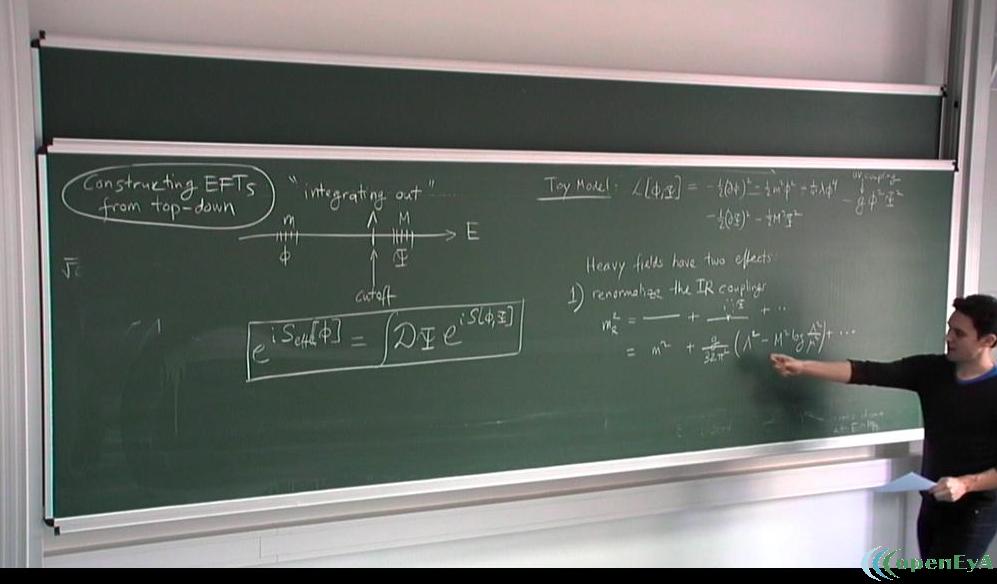 Constructing EFTs
from top-down
"integrating out"
m Λ M
E
ϕ Ψ
cutoff
e^{iS_{eff}[ϕ]} = ∫DΨ e^{iS[ϕ,Ψ]}
Toy Model: L[ϕ,Ψ] = -½(∂ϕ)² - ½m²ϕ² - λϕ⁴
UV coupling
- gϕ²Ψ²
-½(∂Ψ)² - ½M²Ψ²
Heavy fields have two effects:
1) renormalize the IR couplings
Ψ
m_R² = + + ...
= m² + g/32π² (Λ² - M² log Λ²/M²) + ...
openEyA